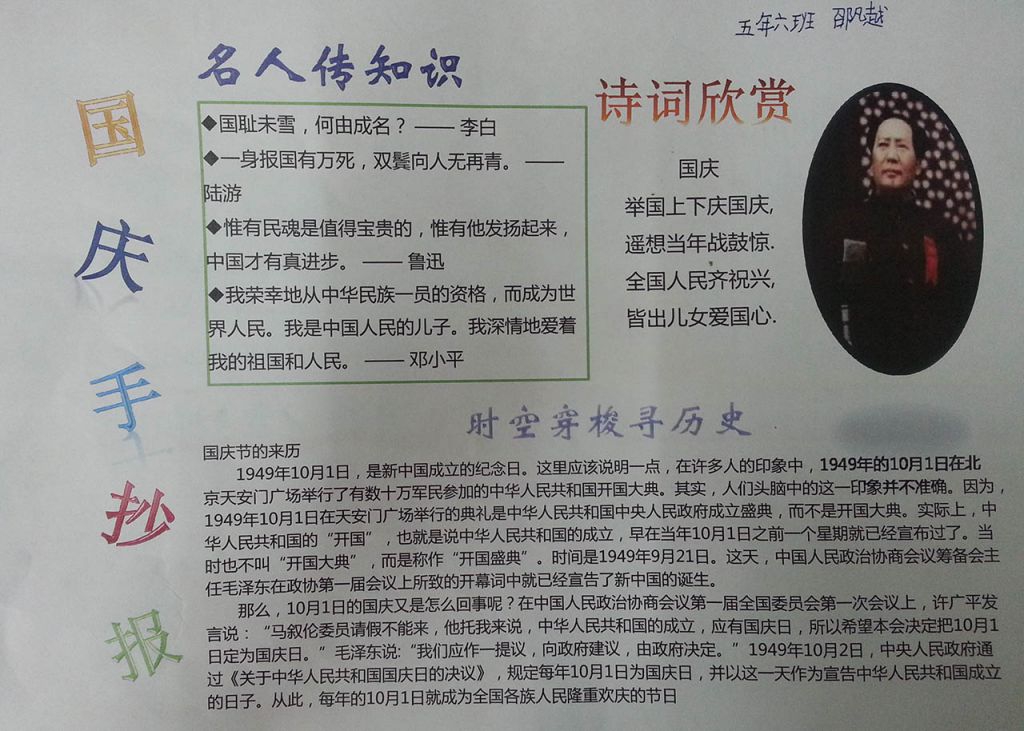 五年六班 邵凡越
国庆手抄报
名人传知识
◆国耻未雪，何由成名？ —— 李白
◆一身报国有万死，双鬓向人无再青。 ——
陆游
◆惟有民魂是值得宝贵的，惟有他发扬起来，
中国才有真进步。 —— 鲁迅
◆我荣幸地从中华民族一员的资格，而成为世
界人民。我是中国人民的儿子。我深情地爱着
我的祖国和人民。 —— 邓小平
诗词欣赏
国庆
举国上下庆国庆,
遥想当年战鼓惊.
全国人民齐祝兴,
皆出儿女爱国心.
时空穿梭寻历史
国庆节的来历
1949年10月1日，是新中国成立的纪念日。这里应该说明一点，在许多人的印象中，1949年的10月1日在北
京天安门广场举行了有数十万军民参加的中华人民共和国开国大典。其实，人们头脑中的这一印象并不准确。因为，
1949年10月1日在天安门广场举行的典礼是中华人民共和国中央人民政府成立盛典，而不是开国大典。实际上，中
华人民共和国的“开国”，也就是说中华人民共和国的成立，早在当年10月1日之前一个星期就已经宣布过了。当
时也不叫“开国大典”，而是称作“开国盛典”。时间是1949年9月21日。这天，中国人民政治协商会议筹备会主
任毛泽东在政协第一届会议上所致的开幕词中就已经宣告了新中国的诞生。
那么，10月1日的国庆又是怎么回事呢？在中国人民政治协商会议第一届全国委员会第一次会议上，许广平发
言说：“马叙伦委员请假不能来，他托我来说，中华人民共和国的成立，应有国庆日，所以希望本会决定把10月1
日定为国庆日。”毛泽东说:“我们应作一提议，向政府建议，由政府决定。”1949年10月2日，中央人民政府通
过《关于中华人民共和国国庆日的决议》，规定每年10月1日为国庆日，并以这一天作为宣告中华人民共和国成立
的日子。从此，每年的10月1日就成为全国各族人民隆重欢庆的节日